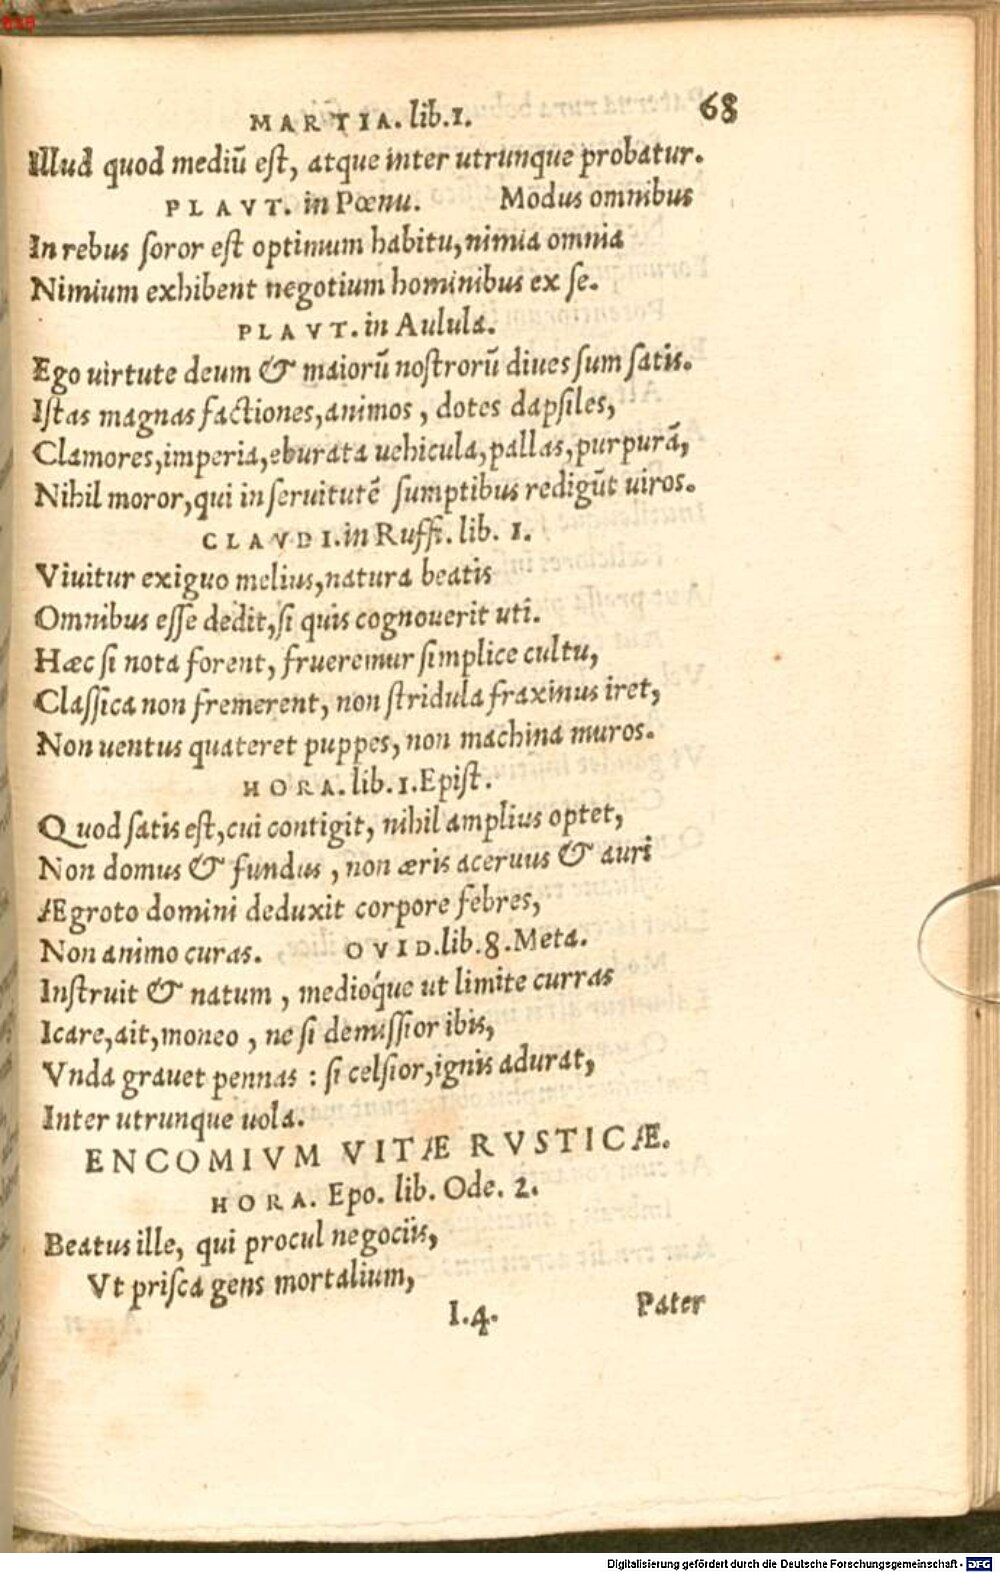 68
MARTIA. lib.1.
Illud quod mediũ est, atque inter utrunque probatur.
PLAVT. in Pœnu. Modus omnibus
In rebus soror est optimum habitu, nimia omnia
Nimium exhibent negotium hominibus ex se.
PLAVT. in Aulula.
Ego uirtute deum & maiorũ nostrorũ diues sum satis.
Istas magnas factiones, animos, dotes dapsiles,
Clamores, imperia, eburata uehicula, pallas, purpurã,
Nihil moror, qui in seruitutẽ sumptibus redigũt uiros.
CLAVDI. in Ruffi. lib. 1.
Viuitur exiguo melius, natura beatis
Omnibus esse dedit, si quis cognouerit uti.
Hæc si nota forent, frueremur simplice cultu,
Classica non fremerent, non stridula fraxinus iret,
Non uentus quateret puppes, non machina muros.
HORA. lib.1. Epist.
Quod satis est, cui contigit, nihil amplius optet,
Non domus & fundus, non æris aceruus & auri
Ægroto domini deduxit corpore febres,
Non animo curas. OVID. lib.8. Meta.
Instruit & natum, medioq́ue ut limite curras
Icare, ait, moneo, ne si demissior ibis,
Vnda grauet pennas: si celsior, ignis adurat,
Inter utrunque uola.
ENCOMIVM VITÆ RVSTICÆ.
HORA. Epo. lib. Ode. 2.
Beatus ille, qui procul negociis,
Vt prisca gens mortalium,
I.4. Pater
Digitalisierung gefördert durch die Deutsche Forschungsgemeinschaft - DFG